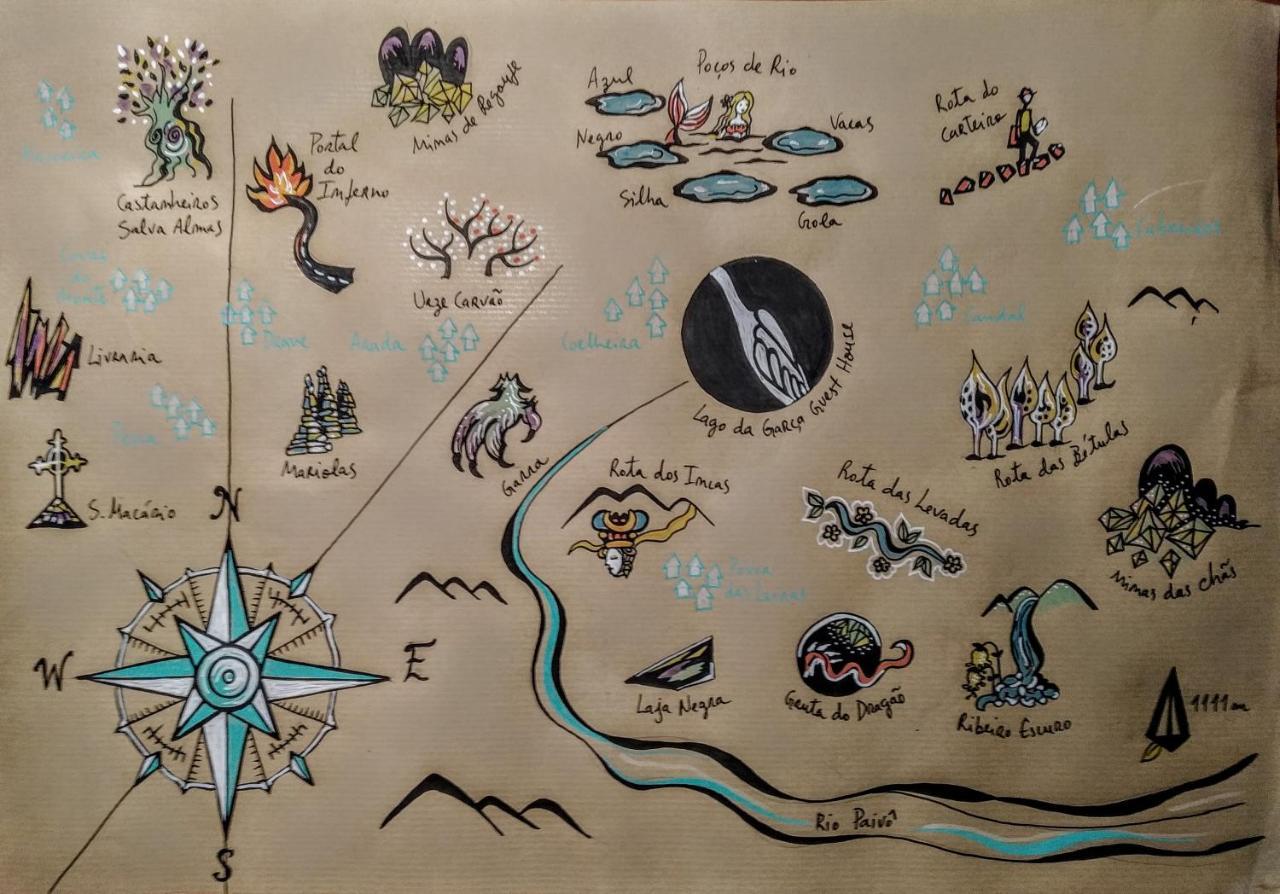 Castanheiros
Salva Almas
Portal
do
Inferno
Minas de Regoufe
Azul
Poços de Rio
Negro
Vacas
Silha
Gola
Rota do
Carteiro
Urze Carvão
Covas
do
Monte
Drave
Arada
Coelheira
Candal
Livraria
Pena
S. Macário
Mariolas
Garra
Lago da Garça Guest House
Rota das Bétulas
Rota dos Incas
Rota das Levadas
Minas das Chãs
Póvoa
das Leiras
Laja Negra
Gruta do Dragão
Ribeiro Escuro
1111 m
N
W
E
S
Rio Paivô